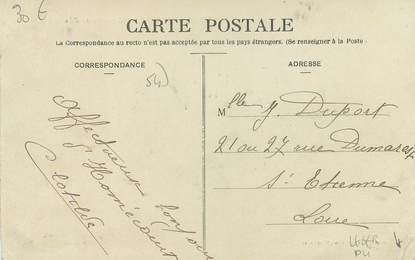 30 €
CARTE POSTALE
La Correspondance au recto n'est pas acceptée par tous les pays étrangers. (Se renseigner à la Poste
CORRESPONDANCE
ADRESSE
54)
Affectueux bonjour
d'Homécourt
Clotilde
Mlle J. Duport
21 ou 27 rue Dumarest
St Etienne
Loire